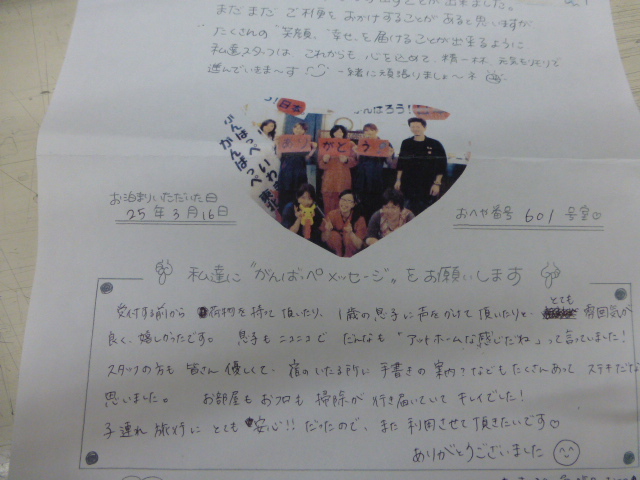 まだまだ ご不便をおかけすることがあると思いますが
たくさんの“笑顔、“幸せ、を届けることが出来るように
私達スタッフは これからも 心を込めて、精一杯、元気モリモリで
進んでいきま〜す 一緒に頑張りましょ〜ネ
がんばろう!
ありがとう
がんばっぺ
がんばっぺ
お泊まりいただいた日
25年3月16日
おへや番号 601 号室♡
私達に“がんばっペメッセージ”をお願いします
受付する前から 荷物を持って頂いたり、1歳の息子に声をかけて頂いたりと、とても 雰囲気が
良く、嬉しかったです。 息子もニコニコで だんなも「アットホームな感じだね」って言っていました!
スタッフの方も 皆さん 優しくて、宿のいたる所に 手書きの案内?などもたくさんあって ステキだな
思いました。 お部屋もお風呂も 掃除が行き届いていて キレイでした!
子連れ旅行に とても 安心!!だったので、また利用させて頂きたいです♡
ありがとうございました